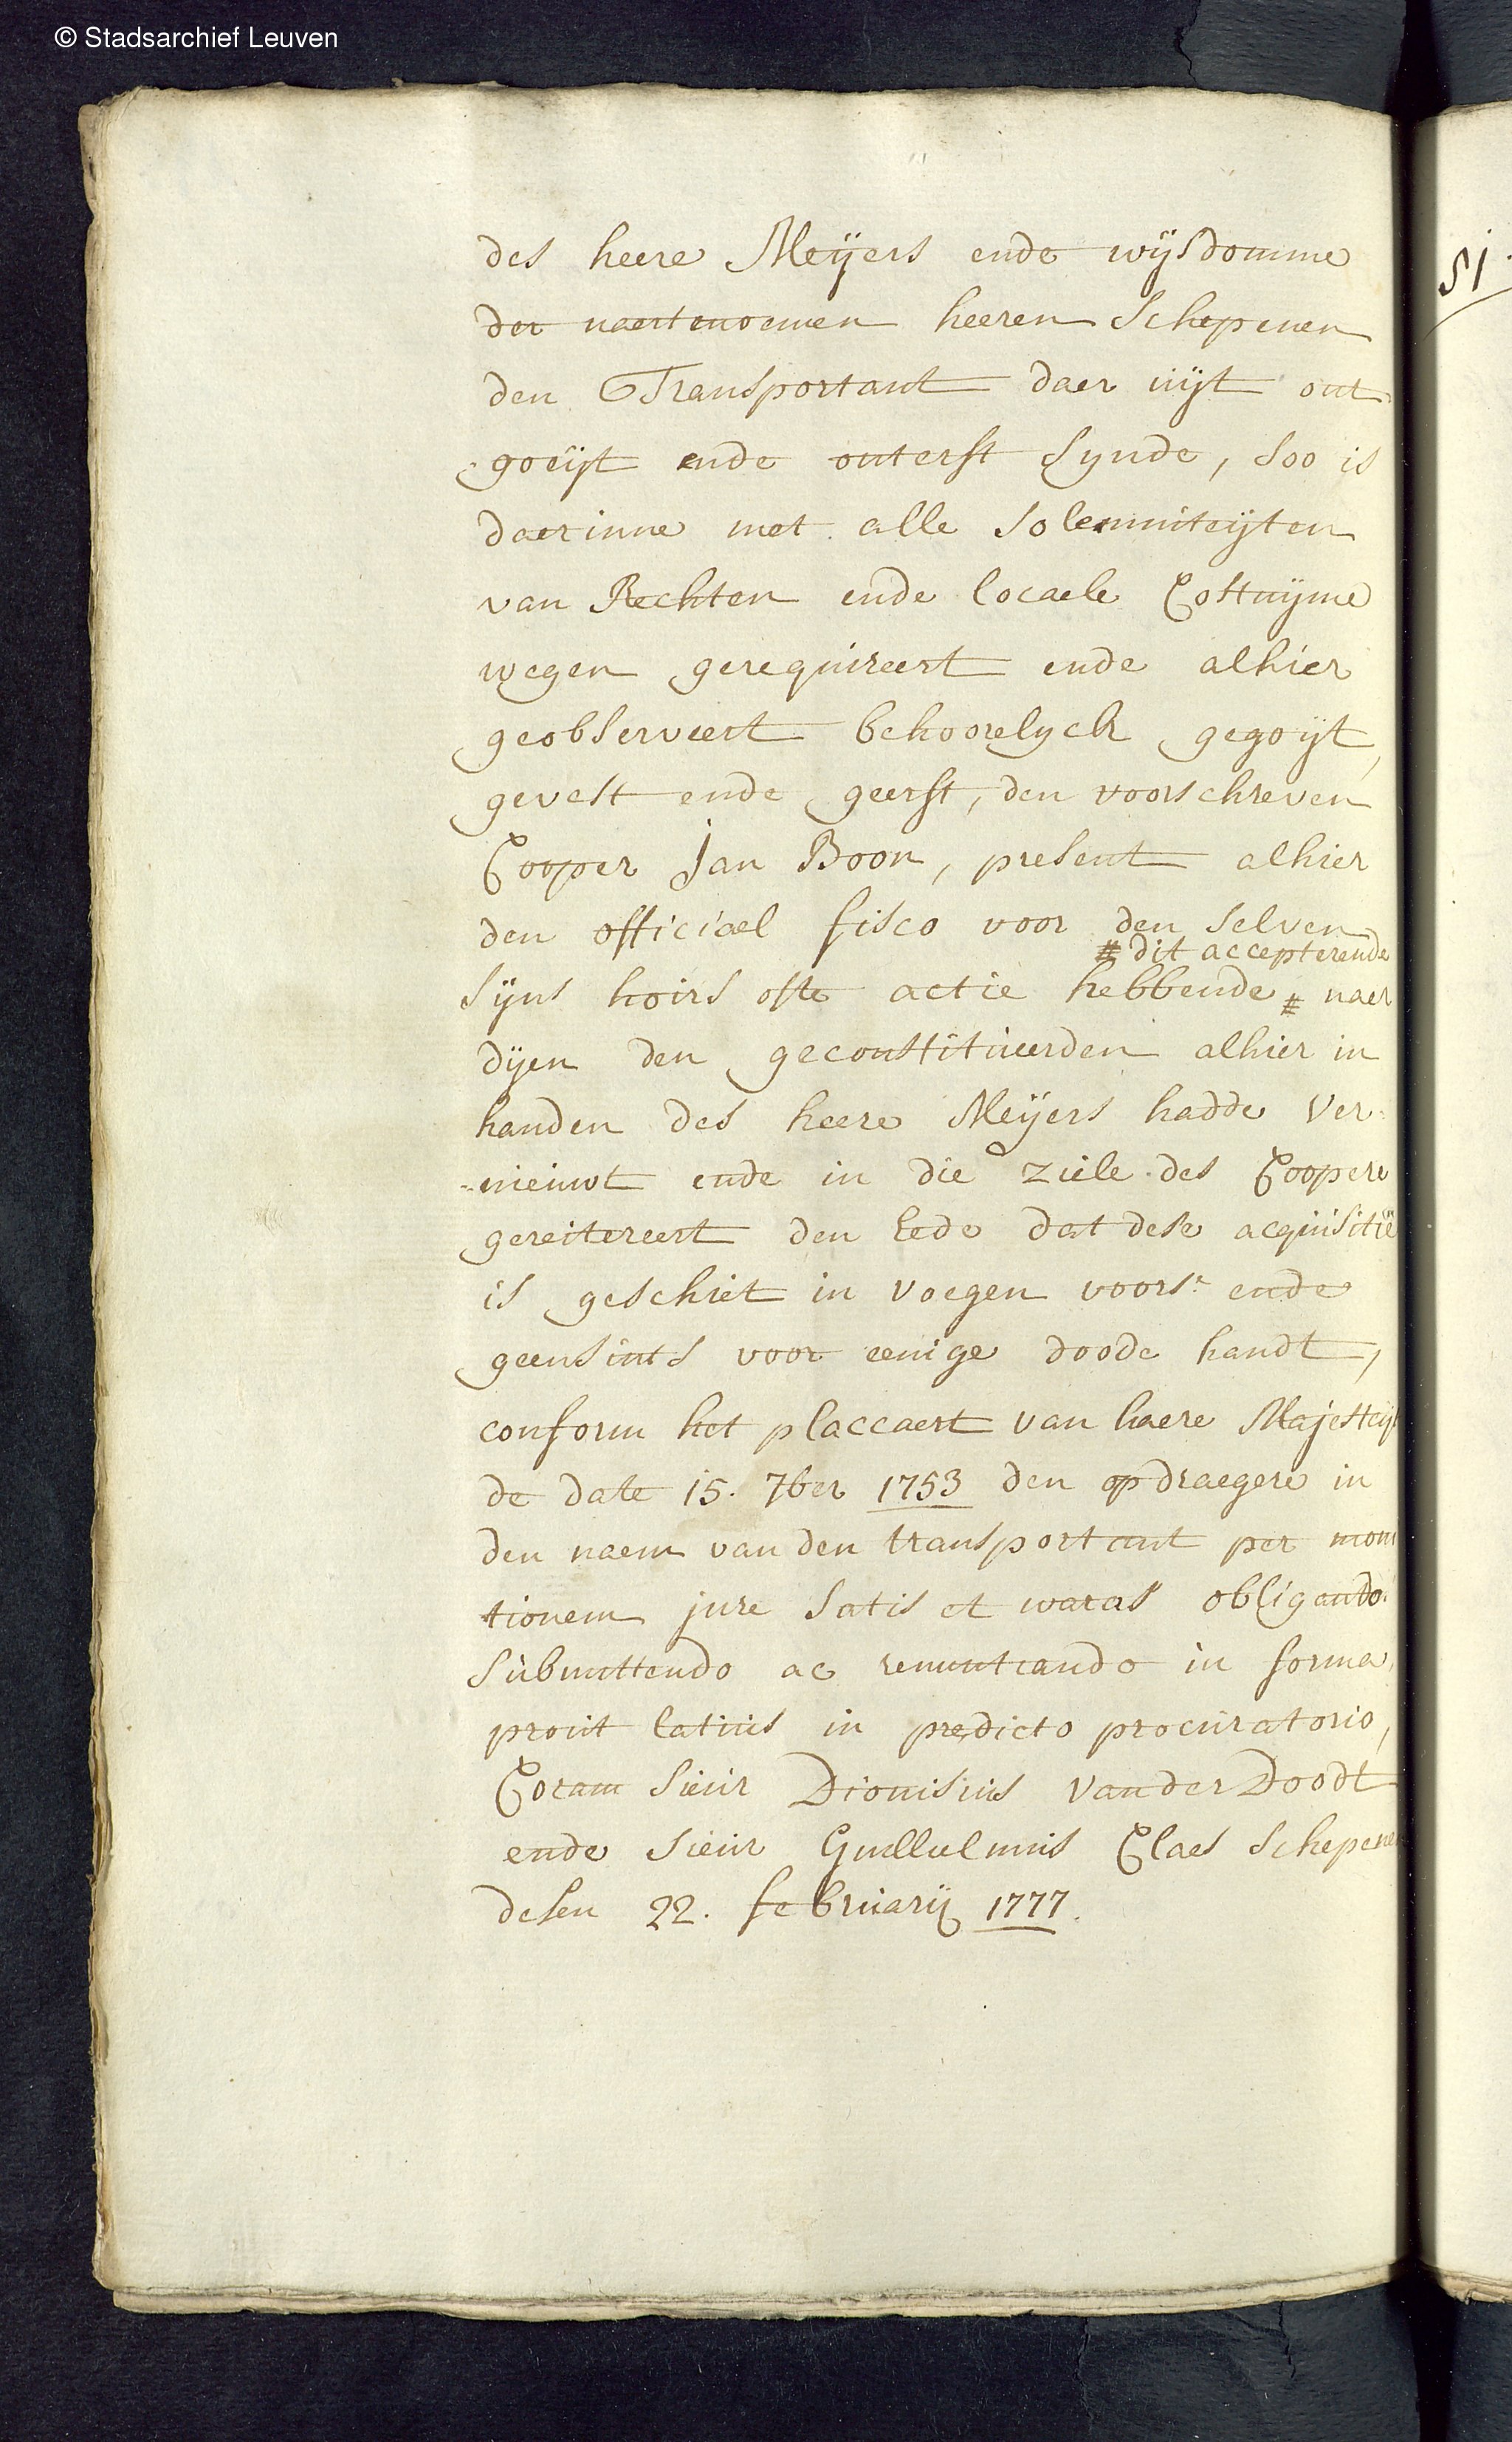 © Stadsarchief Leuven
des heere Meÿers ende wijsdomme
der naertenoemen heeren Schepenen
den Transportant daer uijt ont-
goeijt ende onterft synde, soo is
daerinne met alle solemniteijten
van Rechten ende locaele Costuijme
wegen gerequireert ende alhier
geobserveert behoorelyck gegoijt,
gevest ende geerft, den voorschreven
Cooper Jan Boon, present alhier
den officiael fisco voor den selven
# dit accepterende
sijns hoirs ofte actie hebbende # naer
dijen den geconstitueerden alhier in
handen des heere Meÿers hadde ver-
-nieuwt ende in die ziele des Coopere
gereitereert den Eede dat dese acquisitie
is geschiet in voegen voors. ende
geensints voor eenige doode handt,
conform het placcaert van haere Majesteijt
de date 15. 7ber 1753 den opdraegere in
den naem van den transportant per
tionem jure satis et waras obligando
submittendo ac renuntiando in forma,
prout latius in predicto procuratorio,
Coram Sieur Dionisius Vander Doodt
ende Sieur Guillielmus Claes Schepenen
desen 22. februarij 1777.
51.